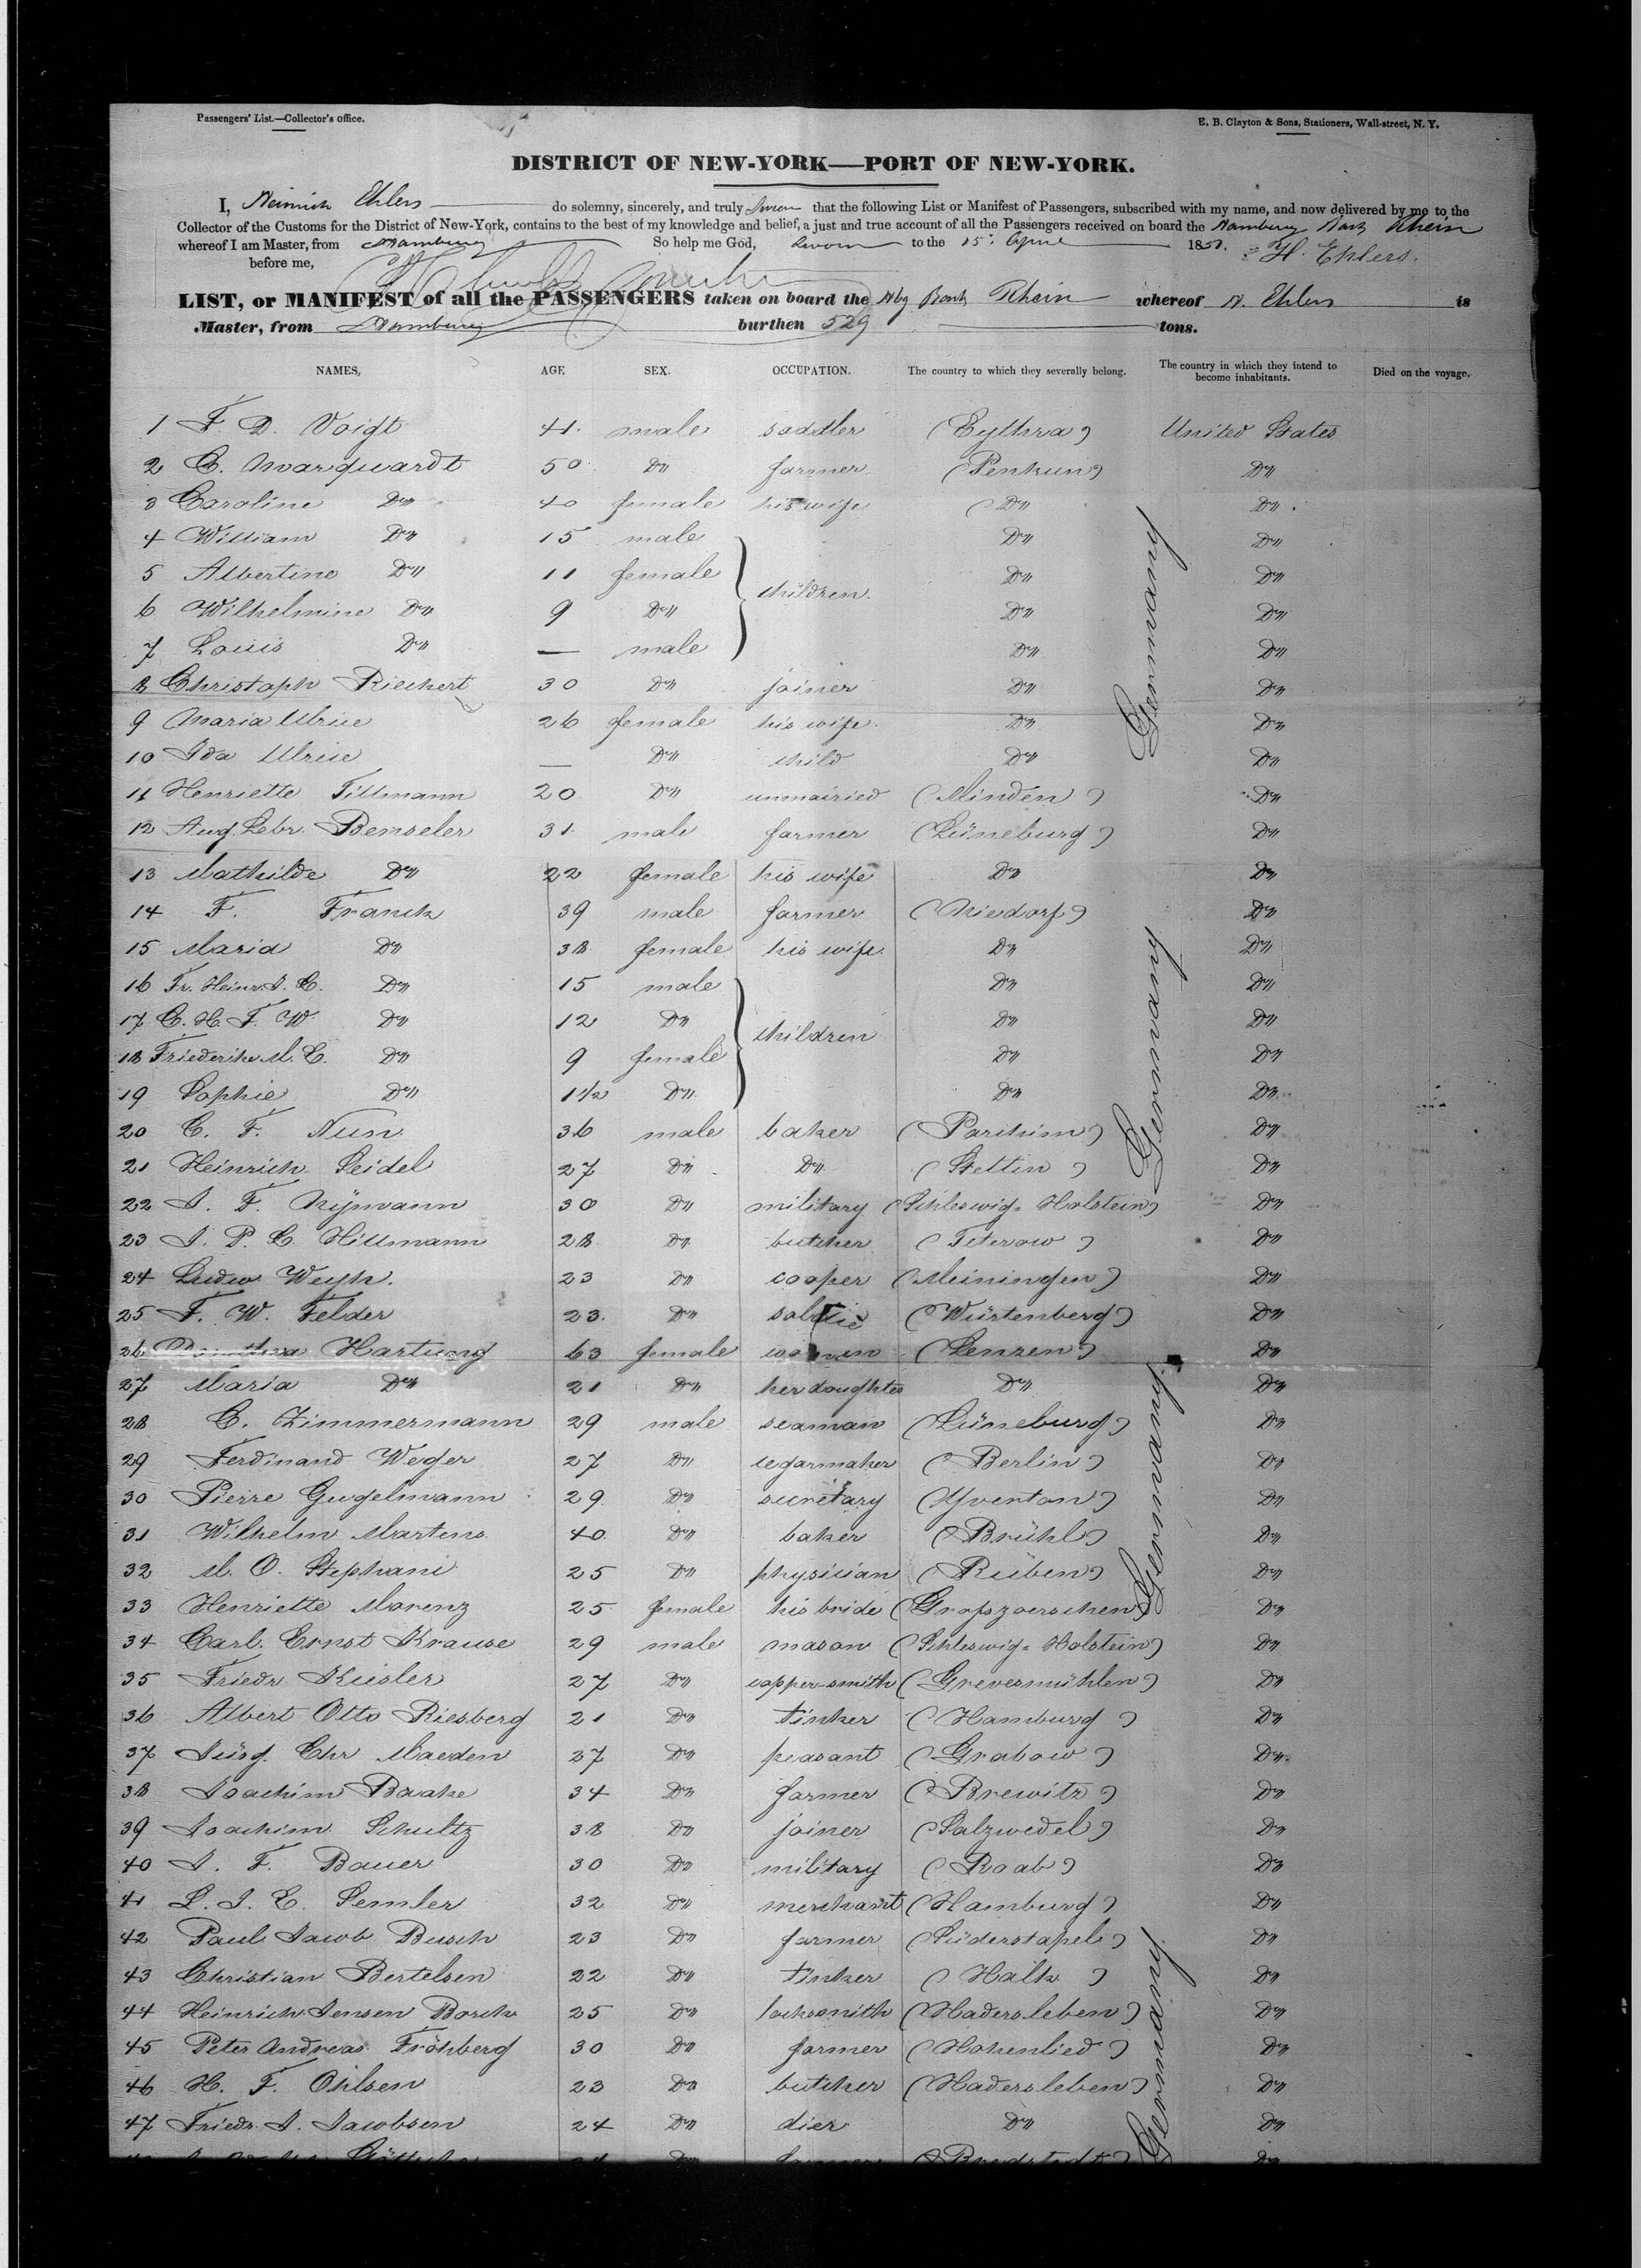 Passengers' List.—Collector's office.
E. B. Clayton & Sons, Stationers, Wall-street, N. Y.
DISTRICT OF NEW-YORK—PORT OF NEW-YORK.
I, Heinrich Ehlers do solemny, sincerely, and truly swear that the following List or Manifest of Passengers, subscribed with my name, and now delivered by me to the
Collector of the Customs for the District of New-York, contains to the best of my knowledge and belief, a just and true account of all the Passengers received on board the Hamburg Bark Rhein
whereof I am Master, from Hamburg So help me God, Sworn to the 15. April 1851. H. Ehlers.
before me,
LIST, or MANIFEST of all the PASSENGERS taken on board the Hbg Bark Rhein whereof H. Ehlers is
Master, from Hamburg burthen 529 tons.
NAMES, AGE SEX. OCCUPATION. The country to which they severally belong. The country in which they intend to become inhabitants. Died on the voyage.
1 F. D. Voigt 41. male saddler (Eythra) United States
2 C. Marquardt 50 Do farmer (Penkun) Do
3 Caroline Do 40 female his wife (Do Do
4 William Do 15 male Do Do
5 Albertine Do 11 female children. Do Do
6 Wilhelmine Do 9 Do Do Do
7 Louis Do — male Do Do
8 Christoph Riechert 30 Do joiner Do Do
9 Maria Ulrice 26 female his wife. Do Do
10 Ida Ulrice — Do child Do Do
11 Henriette Tillmann 20 Do unmairied (Minden) Do
12 Aug. Lebr. Benseler 31. male farmer (Lüneburg) Do
13 Mathilde Do 22 female his wife Do Do
14 F. Franck 39 male farmer (Niedorf) Do
15 Maria Do 38 female his wife Do Do
16 Fr. Heinr. J. C. Do 15 male Do Do
17 C. H. F. W. Do 12 Do children Do Do
18 Friederike M. C. Do 9 female Do Do
19 Sophie Do 1½ Do Do Do
20 C. F. Nun 36 male baker (Parchim) Do
21 Heinrich Seidel 27 Do Do (Stettin) Do
22 J. F. Nÿmann 30 Do military (Schleswig-Holstein) Do
23 J. P. C. Hillmann 28 Do butcher (Teterow) Do
24 Ludw. Weyh. 23 Do cooper (Meiningen) Do
25 F. W. Felder 23. Do (Würtenberg) Do
26 Hartung 63 female (Lenzen) Do
27 Maria Do 21 Do her doughter Do Do
28 C. Zimmermann 29 male seaman (Lüneburg) Do
29 Ferdinand Weger 27 Do segarmaker (Berlin) Do
30 Pierre Gugelmann 29 Do secretary (Yverton) Do
31 Wilhelm Martens 40 Do baker (Brühl) Do
32 M. O. Stephani 25 Do physician (Rüben) Do
33 Henriette Morenz 25 female his bride (Groszgoerschen) Do
34 Carl Ernst Krause 29 male mason (Schleswig-Holstein) Do
35 Friedr. Kiesler 27 Do copper-smith (Grevesmühlen) Do
36 Albert Otto Riesberg 21 Do tinker (Hamburg) Do
37 Jürg. Chr Maeden 27 Do peasant (Grabow) Do
38 Joachim Baake 34 Do farmer (Brewitz) Do
39 Joachim Schultz 38 Do joiner (Salzwedel) Do
40 J. F. Bauer 30 Do military (Raab) Do
41 L. J. E. Semler 32 Do merchant (Hamburg) Do
42 Paul Jacob Busch 23 Do farmer (Süderstapel) Do
43 Christian Bertelsen 22 Do tinker (Halk) Do
44 Heinrich Jensen Borck 25 Do locksmith (Hadersleben) Do
45 Peter Andreas Fröhberg 30 Do farmer (Hohenlied) Do
46 H. F. Ohlsen 23 Do butcher (Hadersleben) Do
47 Friedr. J. Jacobsen 24 Do dier Do Do
Germany
Germany
Germany
Germany